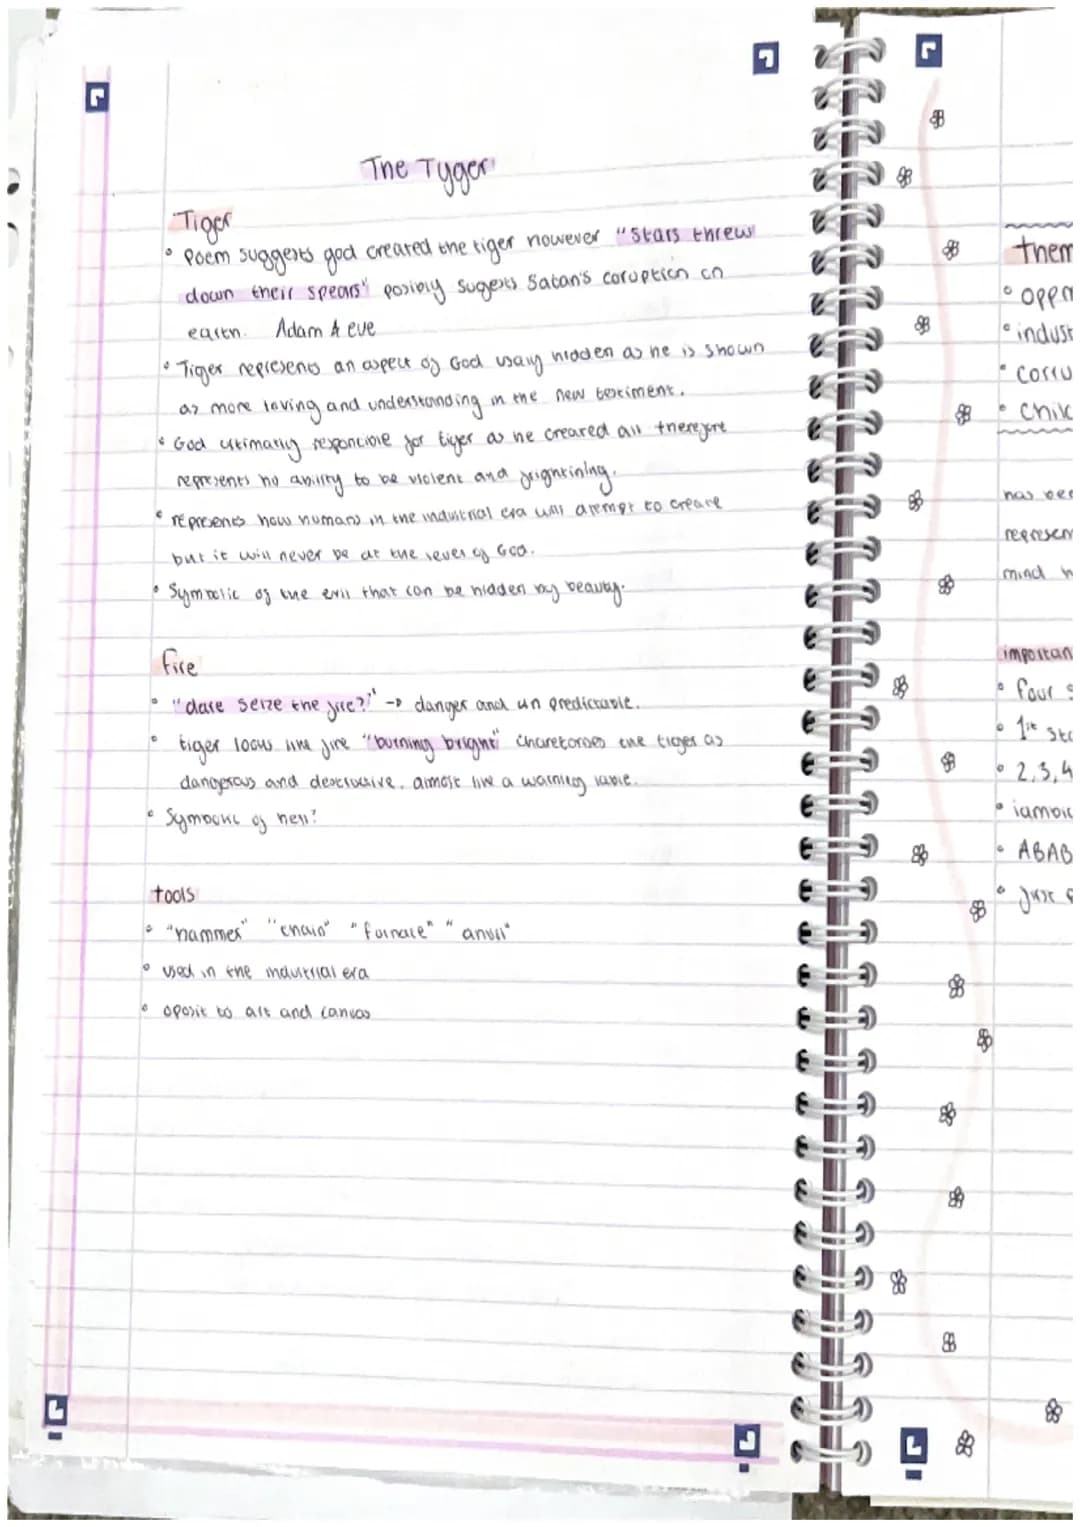 The Tyger
Tiger
• Poem suggests god created the tiger however "Stars threw
down their spears" posibly sugests Satan's coruption on
earth. Adam & eve
• Tiger represents an aspect of God usaly hidden as he is shown
as more loving and understanding in the new testiment.
• God ultimatly responcible for tiger as he created all therefore
represents his ability to be violent and frightining.
• represents how humans in the industrial era will atempt to create
but it will never be at the level of God.
• Symbolic of the evil that can be hidden by beauty.
fire
• "dare seize the fire?" → danger and un predictable.
• tiger looks like fire "burning bright" the tiger as
dangerous and destructive, almost like a warning lable.
• Symbolic of hell?
tools
• "hammer" "chain" "furnace" "anvil"
• used in the industrial era
• oposit to art and canvas
them
• oppr
• indust
• corru
• Chil
has bee
represen
mind h
importan
• four s
• 1st sta
• 2,3,4
• iambic
• ABAB
• Just